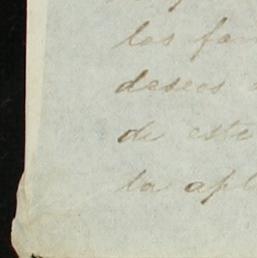 las fam
deseos
de este
la apl